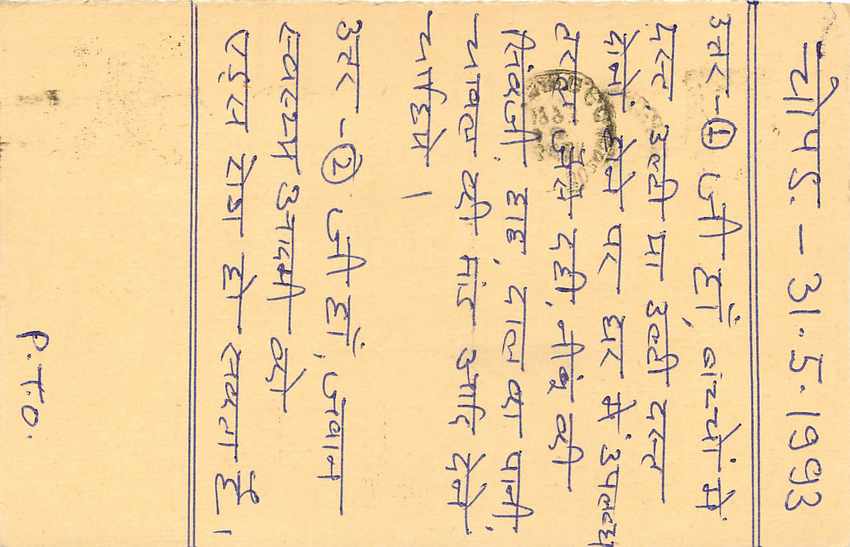 चौपड. - 31.5.1993
उत्तर - ① जी हाँ, बच्चों में
दस्त उल्टी या उल्टी दस्त
दोनों होने पर घर में उपलब्ध
तरल जैसे दही, नींबू की
शिकंजी, छाछ, दाल का पानी,
चावल की मांड आदि देने
चाहिये ।
उत्तर - ② जी हाँ, जवान
स्वस्थ आदमी को
एड्स रोग हो सकता है ।
P.T.O.